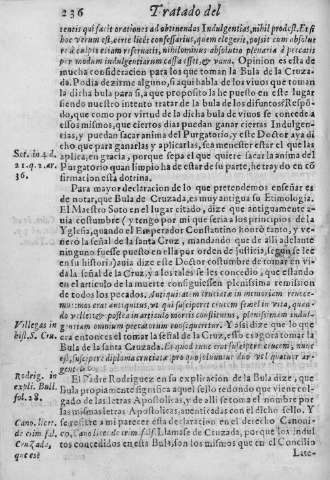 236 Tratado del
tentis qui facit orationes ad obtinendas Indulgentias, nihil prodest. Et
hoc verum est, certe licèt confessarius, quem elegerit, possit eum absolue
re à culpis etiam reservatis, nihilominus absolutio plenaria à peccatis
per modum indulgentiarum cassa esset, & vana. Opinion es esta de
mucha consideracion para los que toman la Bula de la Cruza-
da. Podia dezirme alguno, si aqui habla de los vivos que toman
la dicha bula para si, a que proposito la he puesto en este lugar
siendo nuestro intento tratar de la bula de los difuntos? Respõ
do, que como por virtud de la dicha bula de vivos se concede a
estos mismos, que ciertos dias puedan ganar ciertas Indulgen-
tias, y puedan sacar anima del Purgatorio, y este Doctor aya di
cho que para ganarlas y aplicarlas, sea menester estar el que las
aplica, en gracia, porque sepa el que quiere sacar la anima del
Purgatorio quan limpio ha de estar de su parte, he traydo en cõ
firmacion esta dotrina.
Sot. in 4. d.
21. q. 2. ar.
36.
Para mayor declaracion de lo que pretendemos enseñar es
de notar, que Bula de Cruzada, es muy antigua su Etimologia.
El Maestro Soto en el lugar citado, dize que antiguamente a-
uia costumbre (y tengo por mi que seria a los principios de la
Yglesia, quando el Emperador Constantino honrò tanto, y ve-
nerò la señal de la santa Cruz, mandando que de alli adelante
ninguno fuesse puesto en ella por orden de justicia, segun se lee
en su historia) auia dize este Doctor costumbre de tomar en vi-
da la señal de la Cruz, y a los tales se les concedio, que estando
en el articulo de la muerte consiguiessen plenissima remission
de todos los pecados,
mos: mos erat antiquitus, vt qui susciperet crucem semel in vita, quan-
do vellet postea in articulo mortis constitutus, plenissimam indul-
gentiam omnium peccatorum consequeretur. Y assi dize que lo que
era entonces el tomar la señal de la Cruz, esso es agora tomar la
Bula de la santa Cruzada.
Villegas in
hist. S. Cru.
Rodrig. in
expli. Bull.
fol. 28.
El Padre Rodriguez en su explicacion de la Bula dize, que
Bula propiamente significa aquel sello redondo que viene col-
gado de las letras Apostolicas, y de alli se toma el nombre por
las mismas letras Apostolicas, autenticadas con el dicho sello. Y
se postre a mi parecer esta declaracion en el derecho Canoni-
co,
Llamase de Cruzada, porque los indul
tos concedidos en esta Bula, son los mismos que en el Concilio
Cano. licet.
de crim. fal.
Cruzada,
que es?
Late-